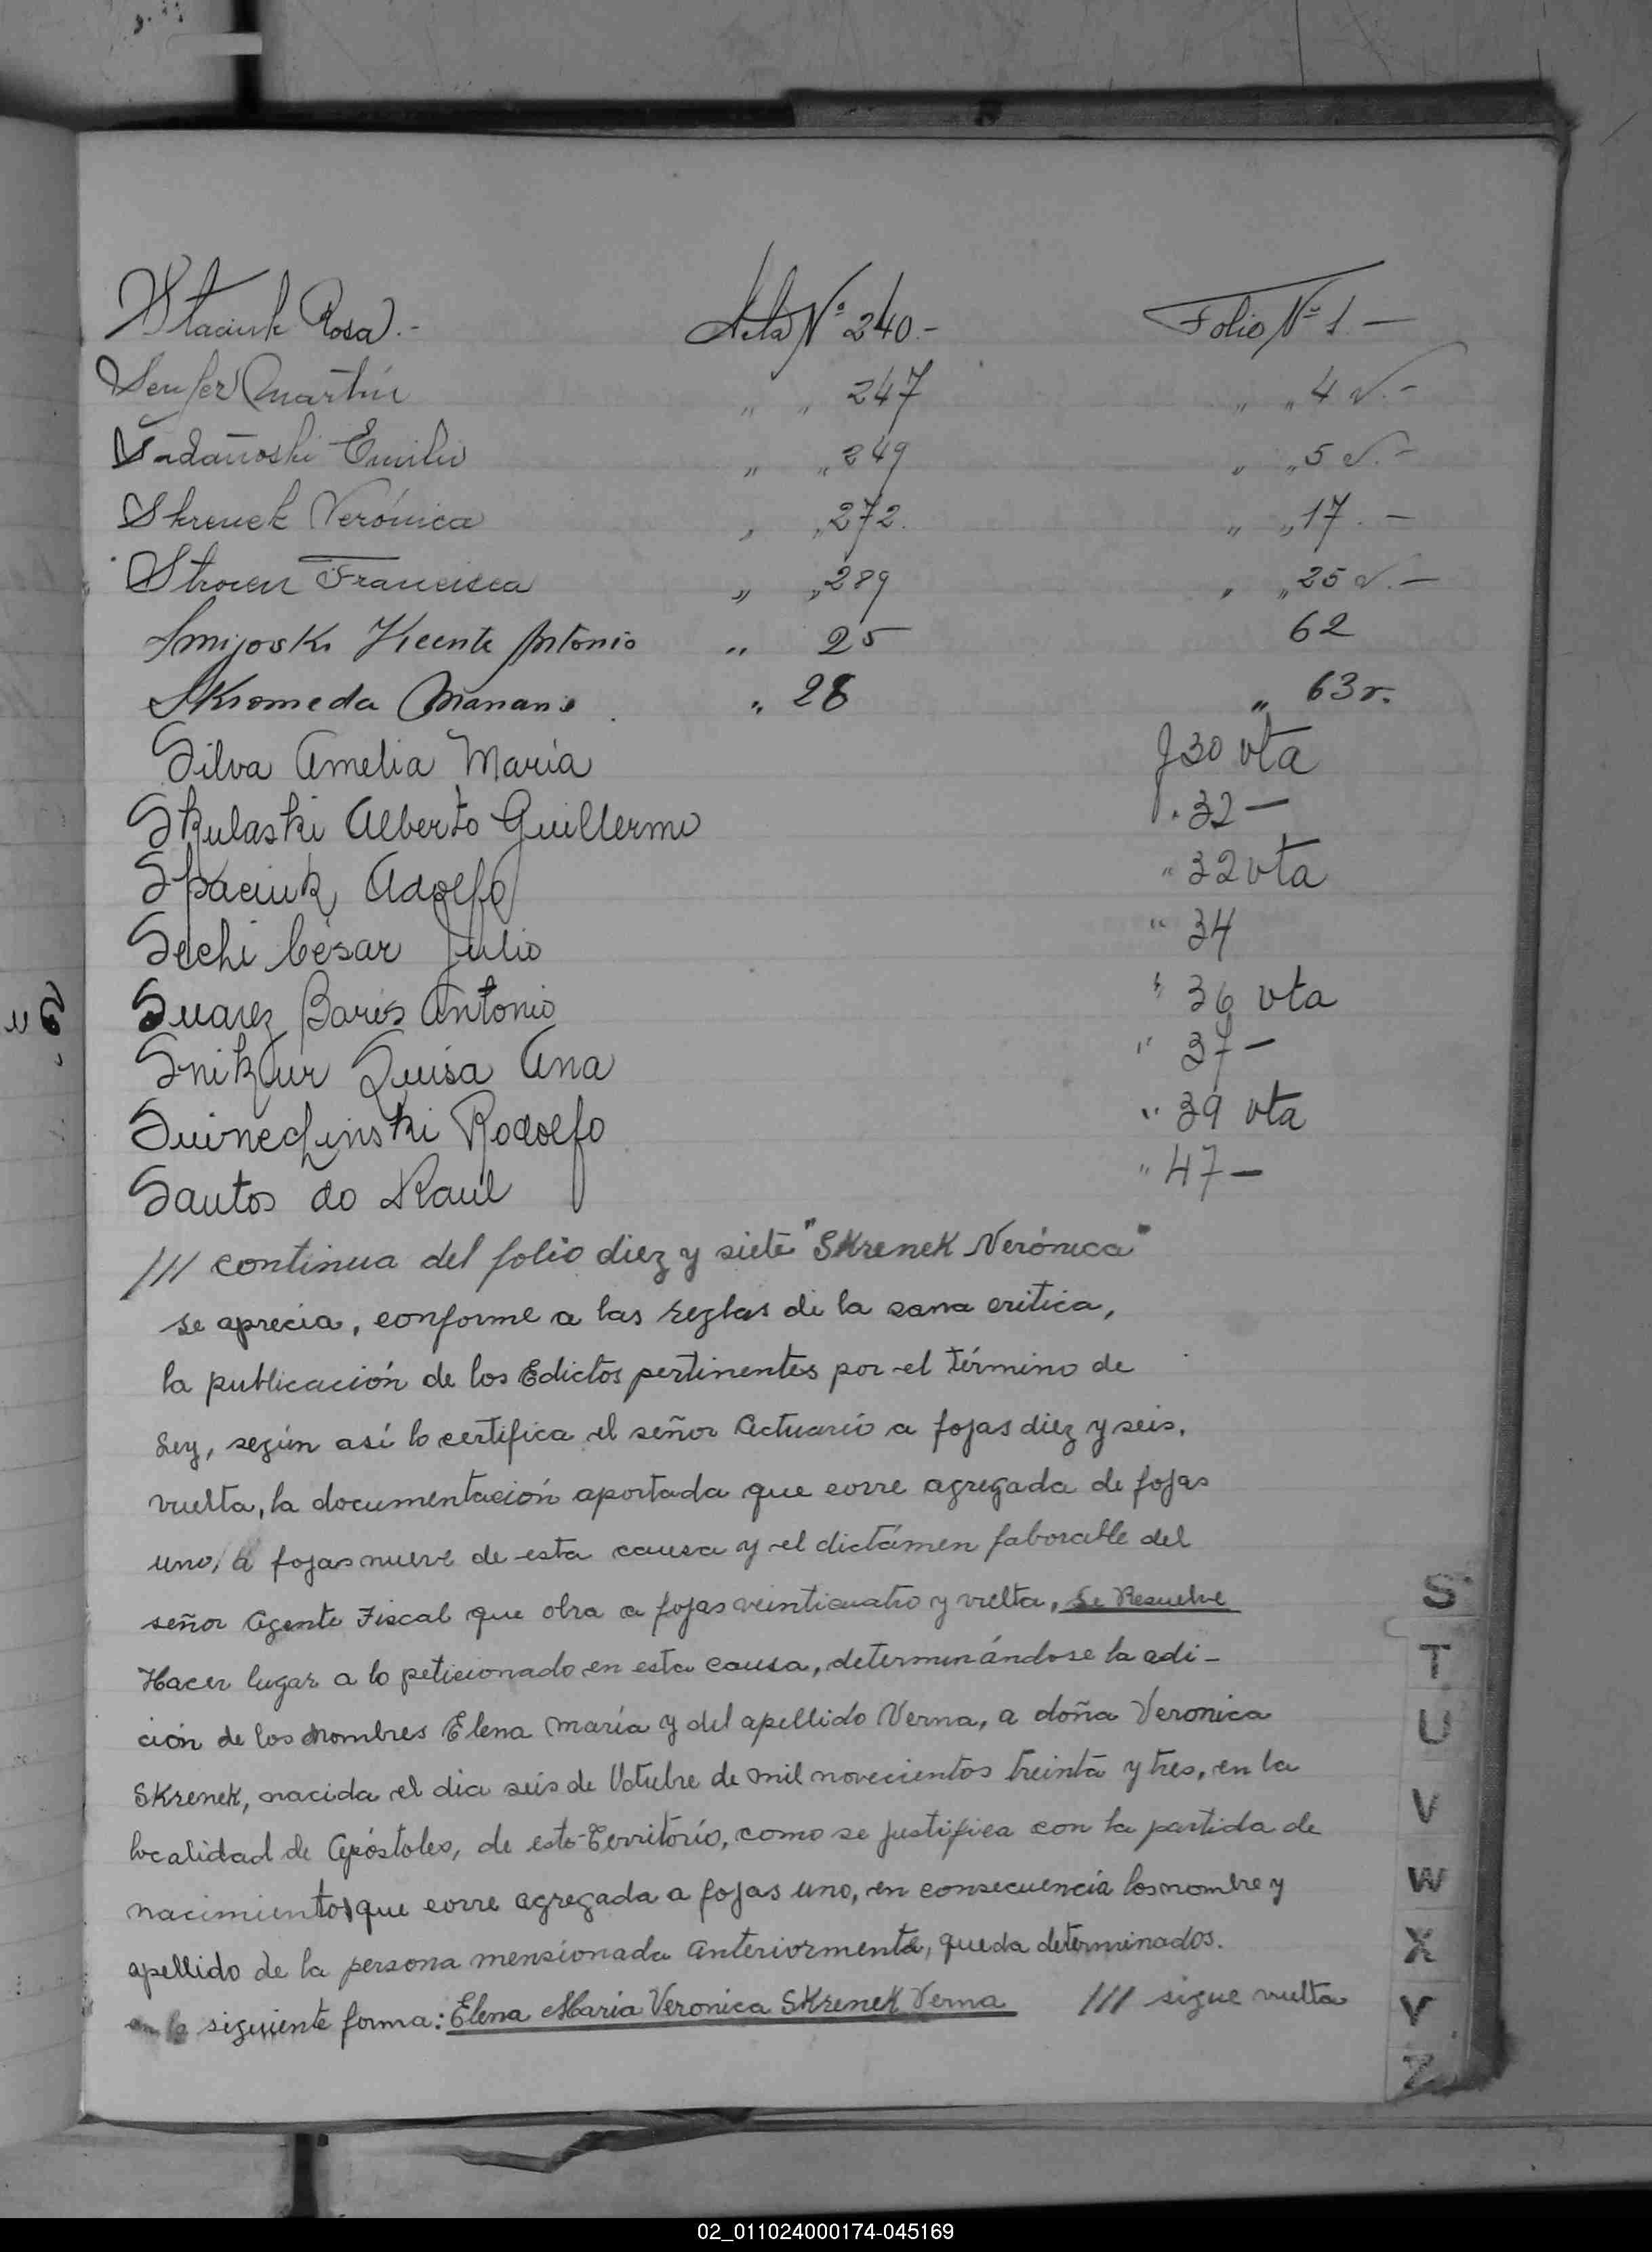 Staciuk Rosa.- Acta Nº 240.- Folio Nº 1.-
Senfer Martín " " 247 " " 4 v.-
Sadañoski Emilio " " 249 " " 5 v.-
Skrenek Verónica " " 272. " " 17.-
Strocen Francisca " " 289 " " 25 v.-
Smijoski Vicente Antonio " 25 62
Skromeda Mariano " 28 " 63 v.
Silva Amelia María f 30 vta
Skulaski Alberto Guillermo " 32 —
Spaciuk Adolfo " 32 vta
Sechi César Julio " 34
Suarez Boris Antonio " 36 vta
Snikur Luisa Ana " 37 —
Rodolfo " 39 vta
Santos do Raúl " 47 —
/// continua del folio diez y siete "Skrenek Verónica"
se aprecia, conforme a las reglas de la sana critica,
la publicación de los Edictos pertinentes por el término de
Ley, según así lo certifica el señor Actuario a fojas diez y seis.
vuelta, la documentación aportada que corre agregada de fojas
uno, a fojas nueve de esta causa y el dictámen faborable del
señor Agente Fiscal que obra a fojas veinticuatro y vuelta, Se Resuelve
Hacer lugar a lo peticionado en esta causa, determinándose la adi-
ción de los Nombres Elena María y del apellido Verna, a doña Veronica
Skrenek, nacida el dia seis de Octubre de mil novecientos treinta y tres, en la
localidad de Apóstoles, de este Territorio, como se justifica con la partida de
nacimiento que corre agregada a fojas uno, en consecuencia los nombre y
apellido de la persona mensionada anteriormente, queda determinados.
en la siguiente forma: Elena Maria Veronica Skrenek Verna /// sigue vuelta
S
T
U
V
W
X
Y
Z
02_011024000174-045169